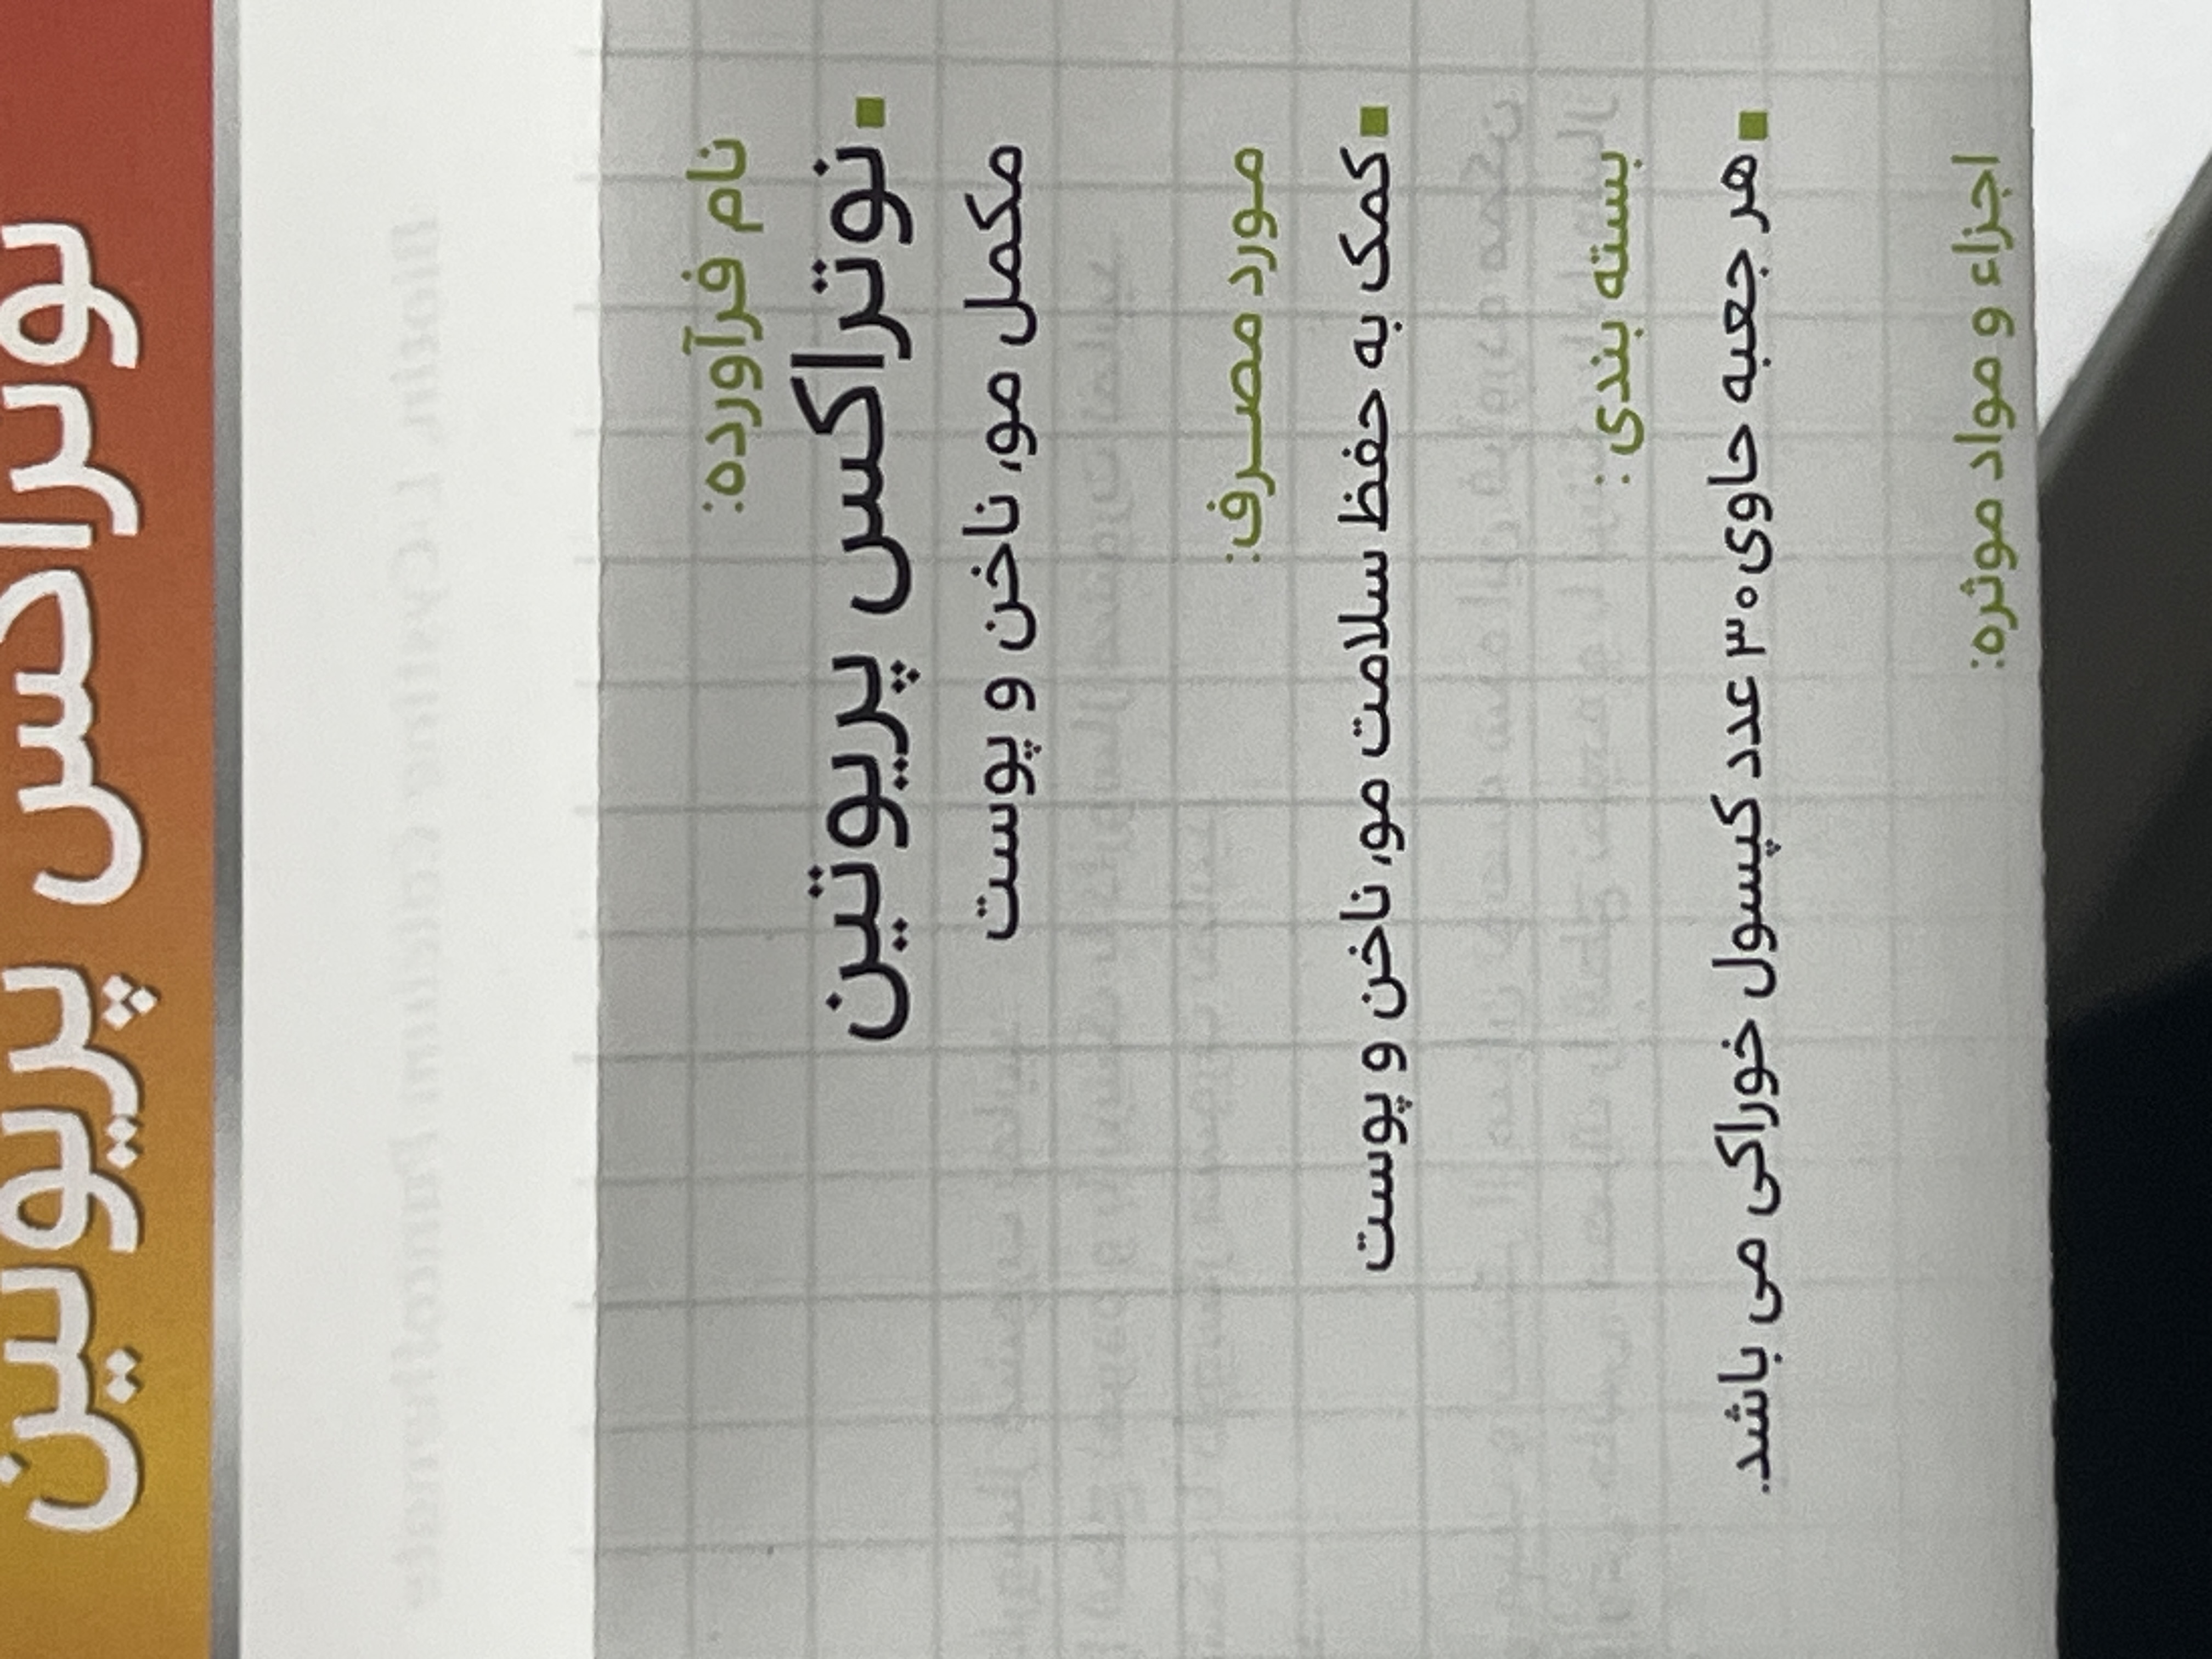 نوتراکس پریوتین
نام فرآورده:
نوتراکس پریوتین
مکمل مو، ناخن و پوست
مورد مصرف:
کمک به حفظ سلامت مو، ناخن و پوست
بسته بندی:
هر جعبه حاوی ۳۰ عدد کپسول خوراکی می باشد.
اجزاء و مواد موثره: